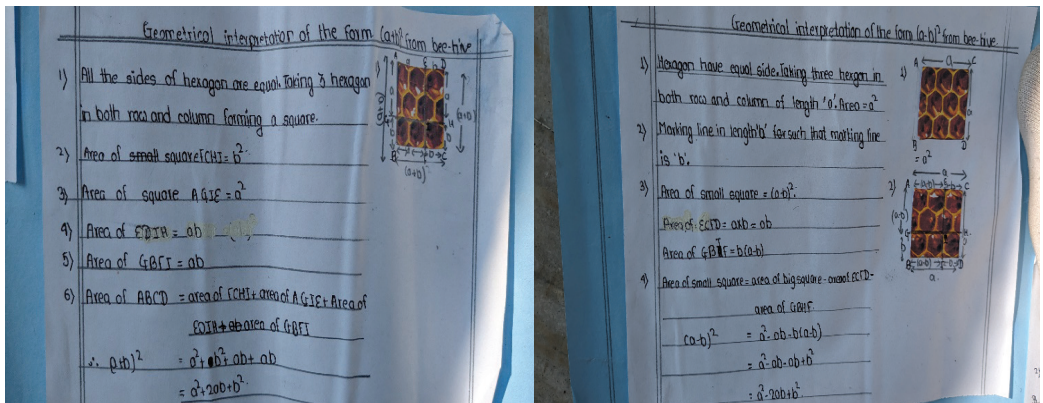 Geometrical interpretation of the form (a+b)² from bee-hive
1) All the sides of hexagon are equal. Taking 3 hexagon
in both row and column forming a square.
2) Area of small square FCHI = b².
3) Area of square AGIE = a²
4) Area of EDIH = ab
5) Area of GBFI = ab
6) Area of ABCD = area of FCHI + area of AGIE + Area of
EDIH + ab area of GBFI
∴ (a+b)² = a² + b² + ab + ab
= a² + 2ab + b².
(a+b)
(a+b)
(a+b)
Geometrical interpretation of the form (a-b)² from bee-hive.
1) Hexagon have equal side. Taking three hexgon in
both row and column of length 'a'. Area = a²
2) Marking line in length 'b' for such that marking line
is 'b'.
3) Area of small square = (a-b)².
Area of ECFD = a×b = ab
Area of GBHF = b(a-b)
4) Area of small square = area of big square - area of ECFD -
area of GBHF
(a-b)² = a² - ab - b(a-b)
= a² - ab - ab + b²
= a² - 2ab + b²
1)
A a C
a
B D
= a²
2)
a
A (a-b) E b C
(a-b)
G H
b
B (a-b) F b D
a